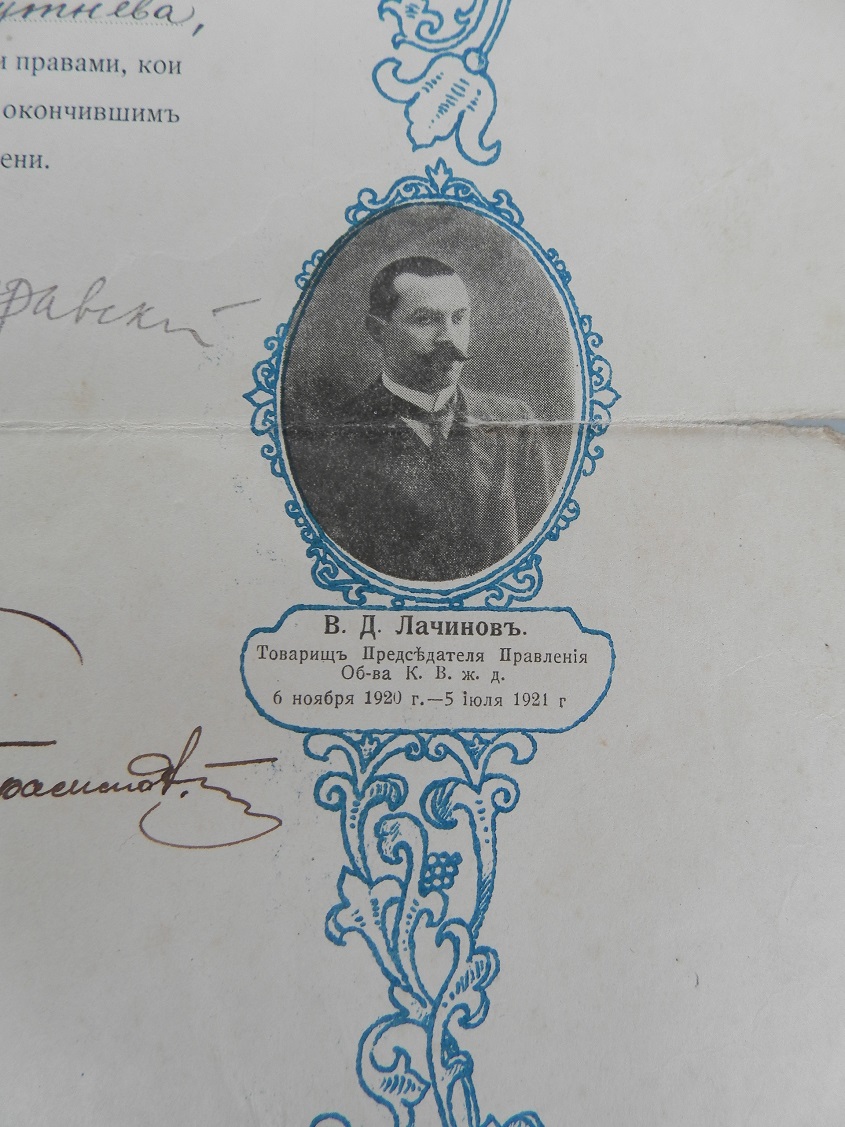 утнева,
и правами, кои
окончившимъ
ени.
В. Д. Лачиновъ.
Товарищъ Предсѣдателя Правленія
Об-ва К. В. ж. д.
6 ноября 1920 г.—5 іюля 1921 г